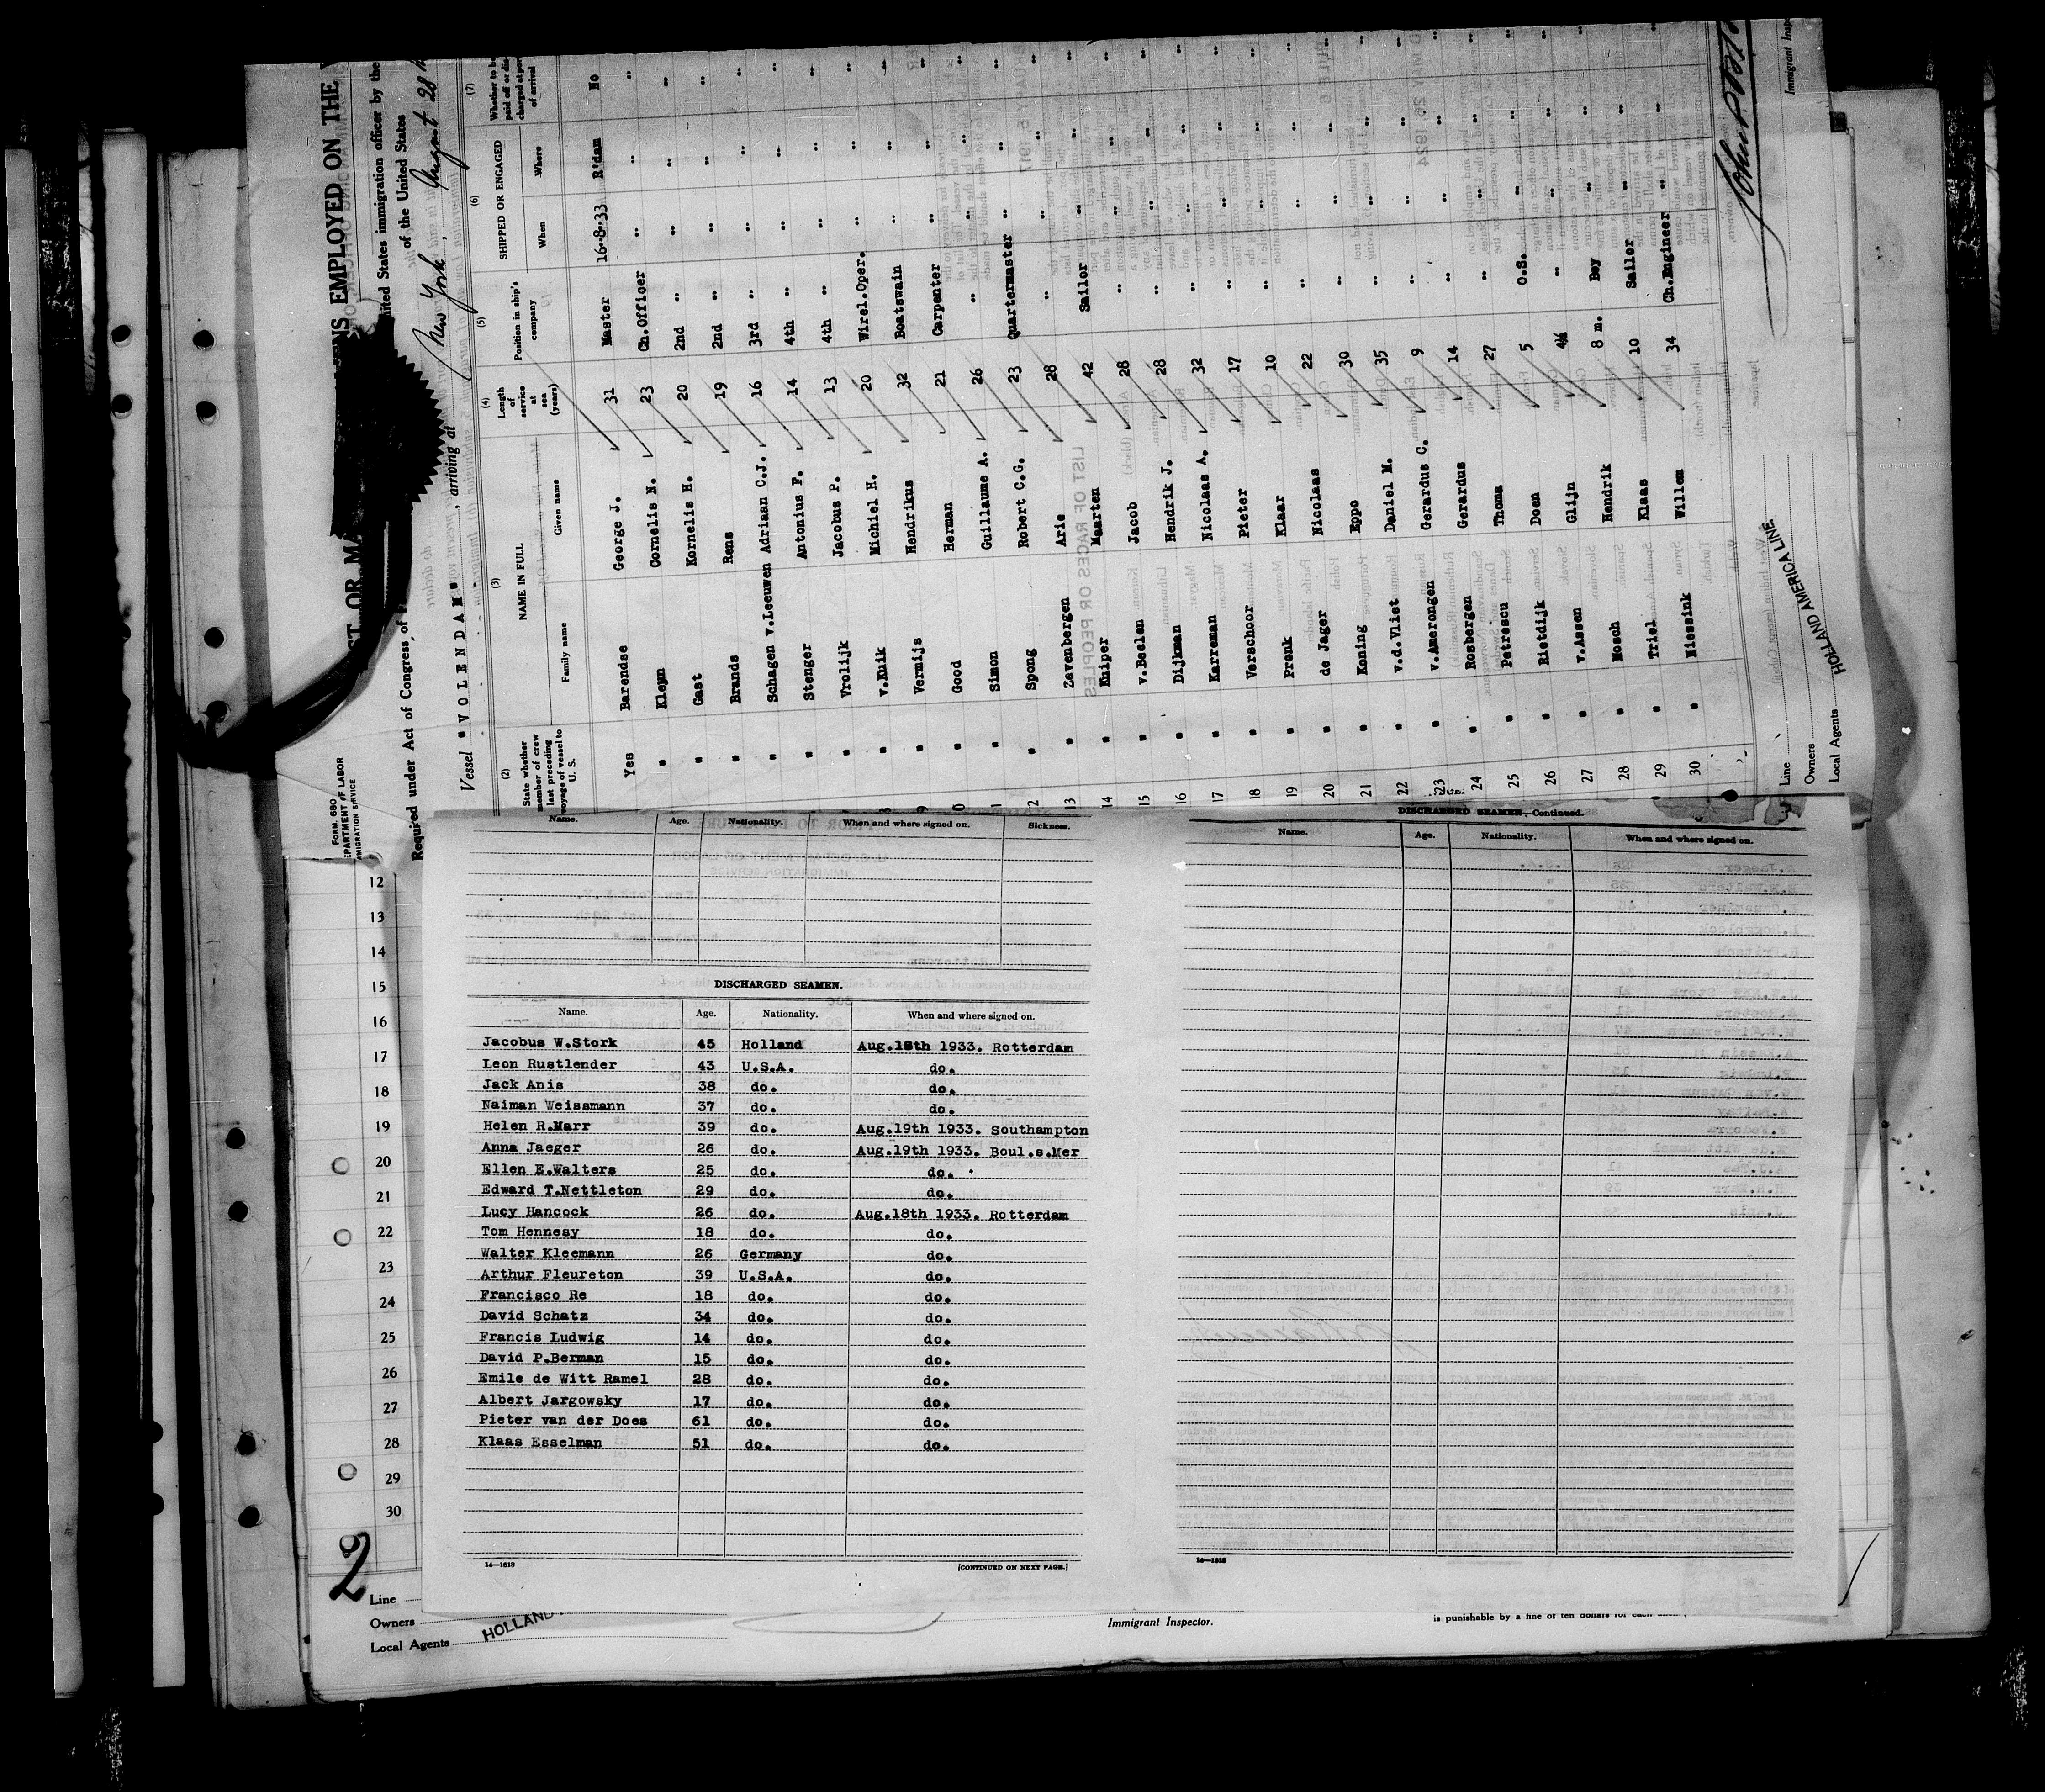 FORM 680
IMMIGRATION SERVICE
NS EMPLOYED ON THE
Required under Act of Congress of
United States immigration officer by the
of the United States
Vessel "VOLENDAM" , arriving at New York, August 28
(2) (3) (4) (5) (6) (7)
State whether member of crew last preceding voyage of vessel to U. S.
NAME IN FULL
Family name Given name
Length of service at sea (years)
Position in ship's company
SHIPPED OR ENGAGED
When Where
Whether to be paid off or discharged at port of arrival
Yes Barendse George J. 31 Master 16-8-33 R'dam No
" Kleyn Cornelis N. 23 Ch.Officer " " "
" Gast Kornelis H. 20 2nd " " " "
" Brands Rens 19 2nd " " " "
" Schagen v.Leeuwen Adriaan C.J. 16 3rd " " " "
" Stenger Antonius F. 14 4th " " " "
" Vrolijk Jacobus P. 13 4th " " " "
8 " v.Khik Michiel H. 20 Wirel.Oper. " " "
9 " Vermijs Hendrikus 32 Boatswain " " "
0 " Good Herman 21 Carpenter " " "
1 " Simon Guillaume A. 26 " " " "
2 " Spong Robert C.G. 23 Quartermaster " " "
13 " Zevenbergen Arie 28 " " " "
14 " Kuiper Maarten 42 Sailor " " "
15 " v.Beelen Jacob 28 " " " "
16 " Dijkman Hendrik J. 28 " " " "
17 " Karreman Nicolaas A. 32 " " " "
18 " Verschoor Pieter 17 " " " "
19 " Prenk Klaar 10 " " " "
20 " de Jager Nicolaas 22 " " " "
21 " Koning Eppo 30 " " " "
22 " v.d.Vliet Daniel M. 35 " " " "
23 " v.Amerongen Gerardus C. 9 " " " "
24 " Rosbergen Gerardus 14 " " " "
25 " Petrescu Thoma 27 " " " "
26 " Rietdijk Doen 5 O.S. " " "
27 " v.Assen Glijn 4½ " " " "
28 " Mosch Hendrik 8 m. Boy " " "
29 " Triel Klaas 10 Sailor " " "
30 " Niessink Willem 34 Ch.Engineer " " "
LIST OF RACES OR PEOPLES
Line
Owners
Local Agents HOLLAND AMERICA LINE
Immigrant Insp
Name. Age. Nationality. When and where signed on. Sickness.
DISCHARGED SEAMEN.
Name. Age. Nationality. When and where signed on.
Jacobus W.Stork 45 Holland Aug.18th 1933. Rotterdam
Leon Rustlender 43 U.S.A. do.
Jack Anis 38 do. do.
Naiman Weissmann 37 do. do.
Helen R.Marr 39 do. Aug.19th 1933. Southampton
Anna Jaeger 26 do. Aug.19th 1933. Boul.s.Mer
Ellen E.Walters 25 do. do.
Edward T.Nettleton 29 do. do.
Lucy Hancock 26 do. Aug.18th 1933. Rotterdam
Tom Hennesy 18 do. do.
Walter Kleemann 26 Germany do.
Arthur Fleureton 39 U.S.A. do.
Francisco Re 18 do. do.
David Schatz 34 do. do.
Francis Ludwig 14 do. do.
David P.Berman 15 do. do.
Emile de Witt Ramel 28 do. do.
Albert Jargowsky 17 do. do.
Pieter van der Does 61 do. do.
Klaas Esselman 51 do. do.
14—1613 [CONTINUED ON NEXT PAGE.]
DISCHARGED SEAMEN, Continued.
Name. Age. Nationality. When and where signed on.
14—1613
12
13
14
15
16
17
18
19
20
21
22
23
24
25
26
27
28
29
30
2
Line
Owners
Local Agents HOLLAND
Immigrant Inspector.
is punishable by a fine of ten dollars for each